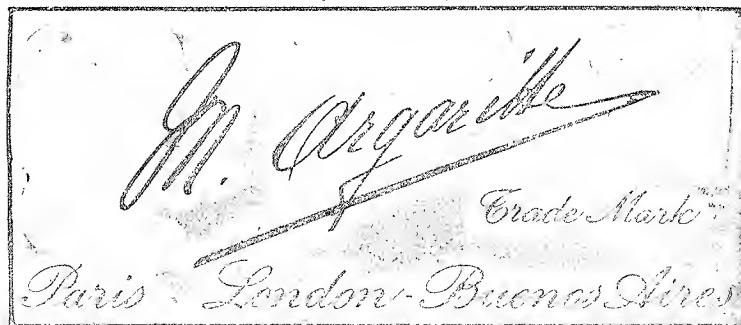 M. Argaritte
Trade Mark
Paris - London - Buenos Aires